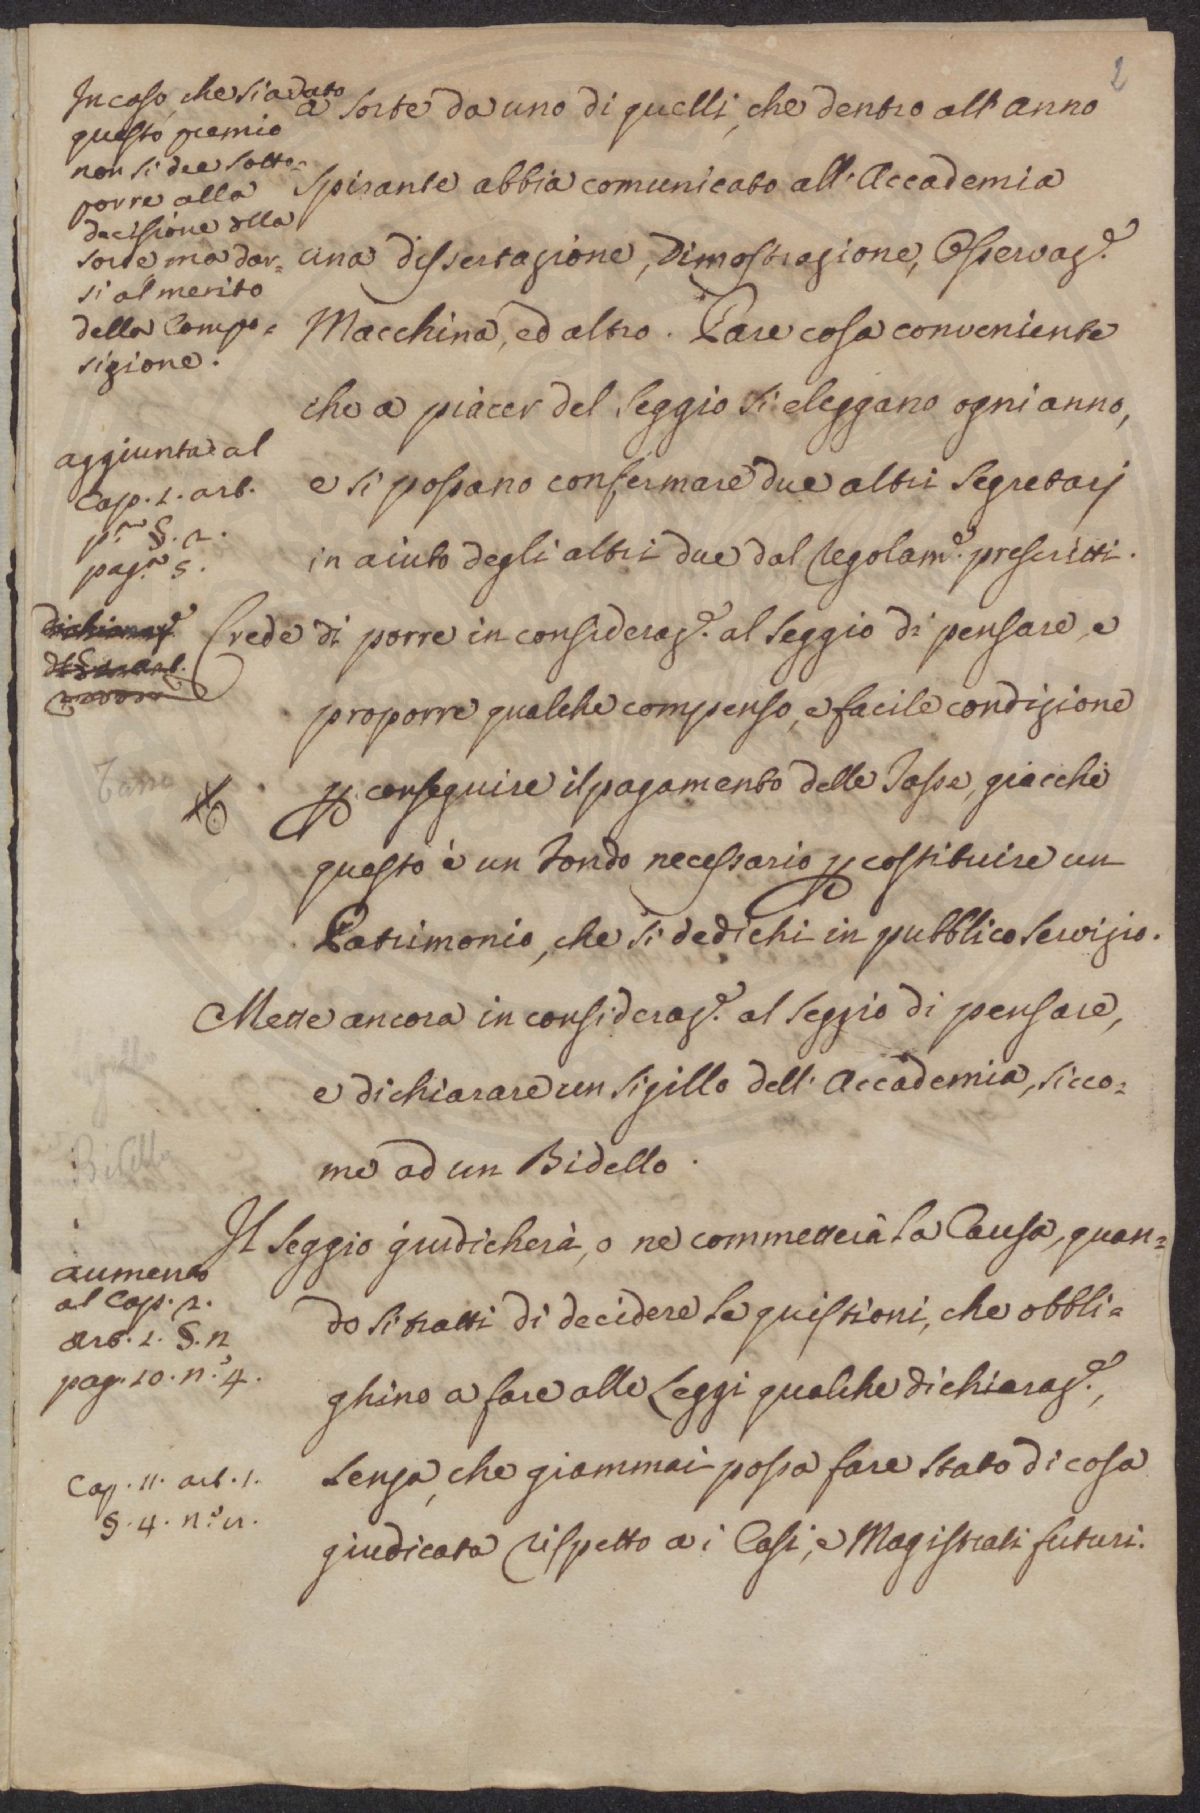 2
In caso, che sia dato
questo premio
non si dee sotto=
porre alla
decisione della
sorte ma dar=
si al merito
della Compo=
sizione.
a sorte da uno di quelli, che dentro all'anno
spirante abbia comunicato all'Accademia
una dissertazione, Dimostrazione, Osservaz.e
Macchina, ed altro. Pare cosa conveniente
che a piacer del Seggio si eleggano ogni anno,
aggiunta al
Cap. 1. art.
p.mo §. 2.
pag.a 5.
e si possano confermare due altri Segretarj
in aiuto degli altri due dal Regolam.o prescritti.
Crede di porre in consideraz.e al Seggio di pensare, e
proporre qualche compenso, e facile condizione
Tasse
p conseguire il pagamento delle Tasse, giacchè
questo è un Fondo necessario p costituire un
Patrimonio, che si dedichi in pubblico servizio.
Mette ancora in consideraz.e al Seggio di pensare,
e dichiarare un Sigillo dell'Accademia, sicco=
Bidello
me ad un Bidello.
Il Seggio giudicherà, o ne commetterà la Causa, quan=
aumento
al Cap. 2.
art. 1. §. 12
pag. 10. n.o 4.
do si tratti di decidere le quistioni, che obbli=
ghino a fare alle Leggi qualche dichiaraz.e,
Cap. 11. art. 1.
§. 4. n.o
senza, che giammai possa fare stato di cosa
giudicata rispetto a i Casi, e Magistrati futuri.